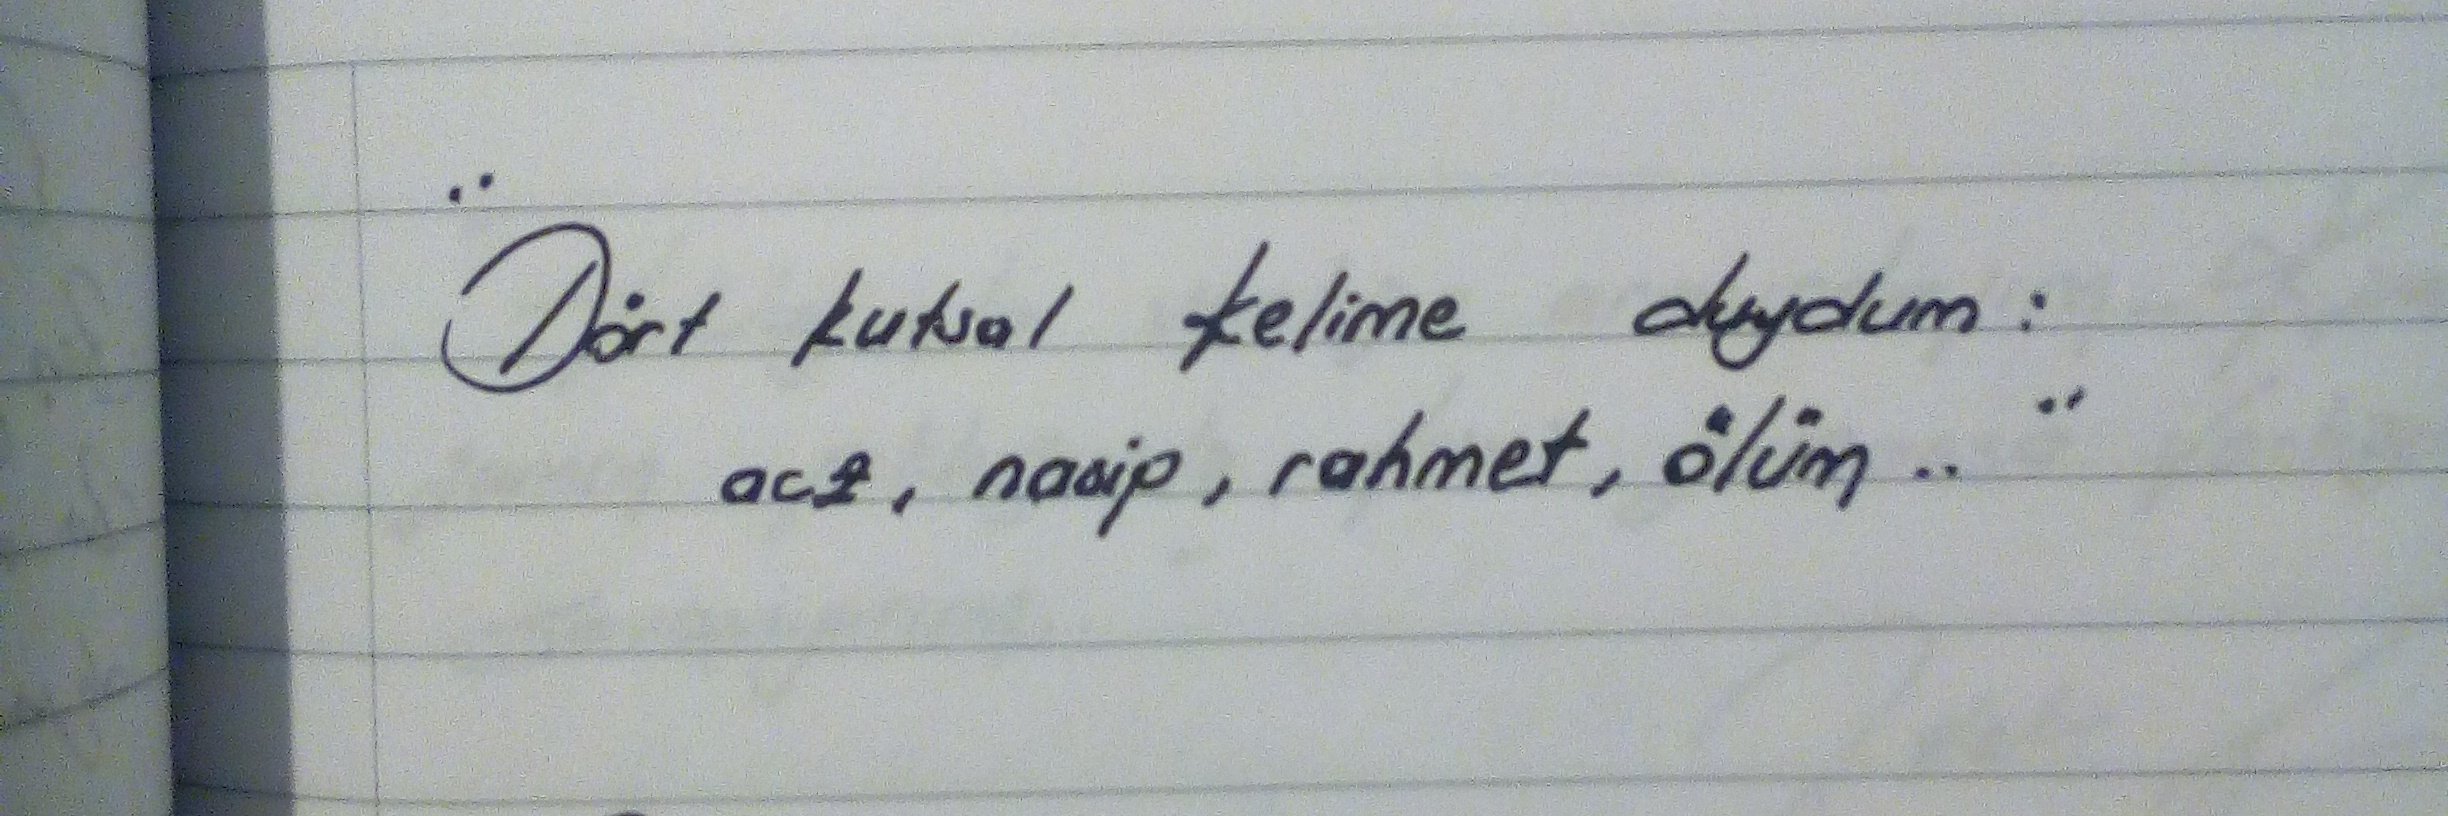 "Dört kutsal kelime duydum:
acı, nasip, rahmet, ölüm.."